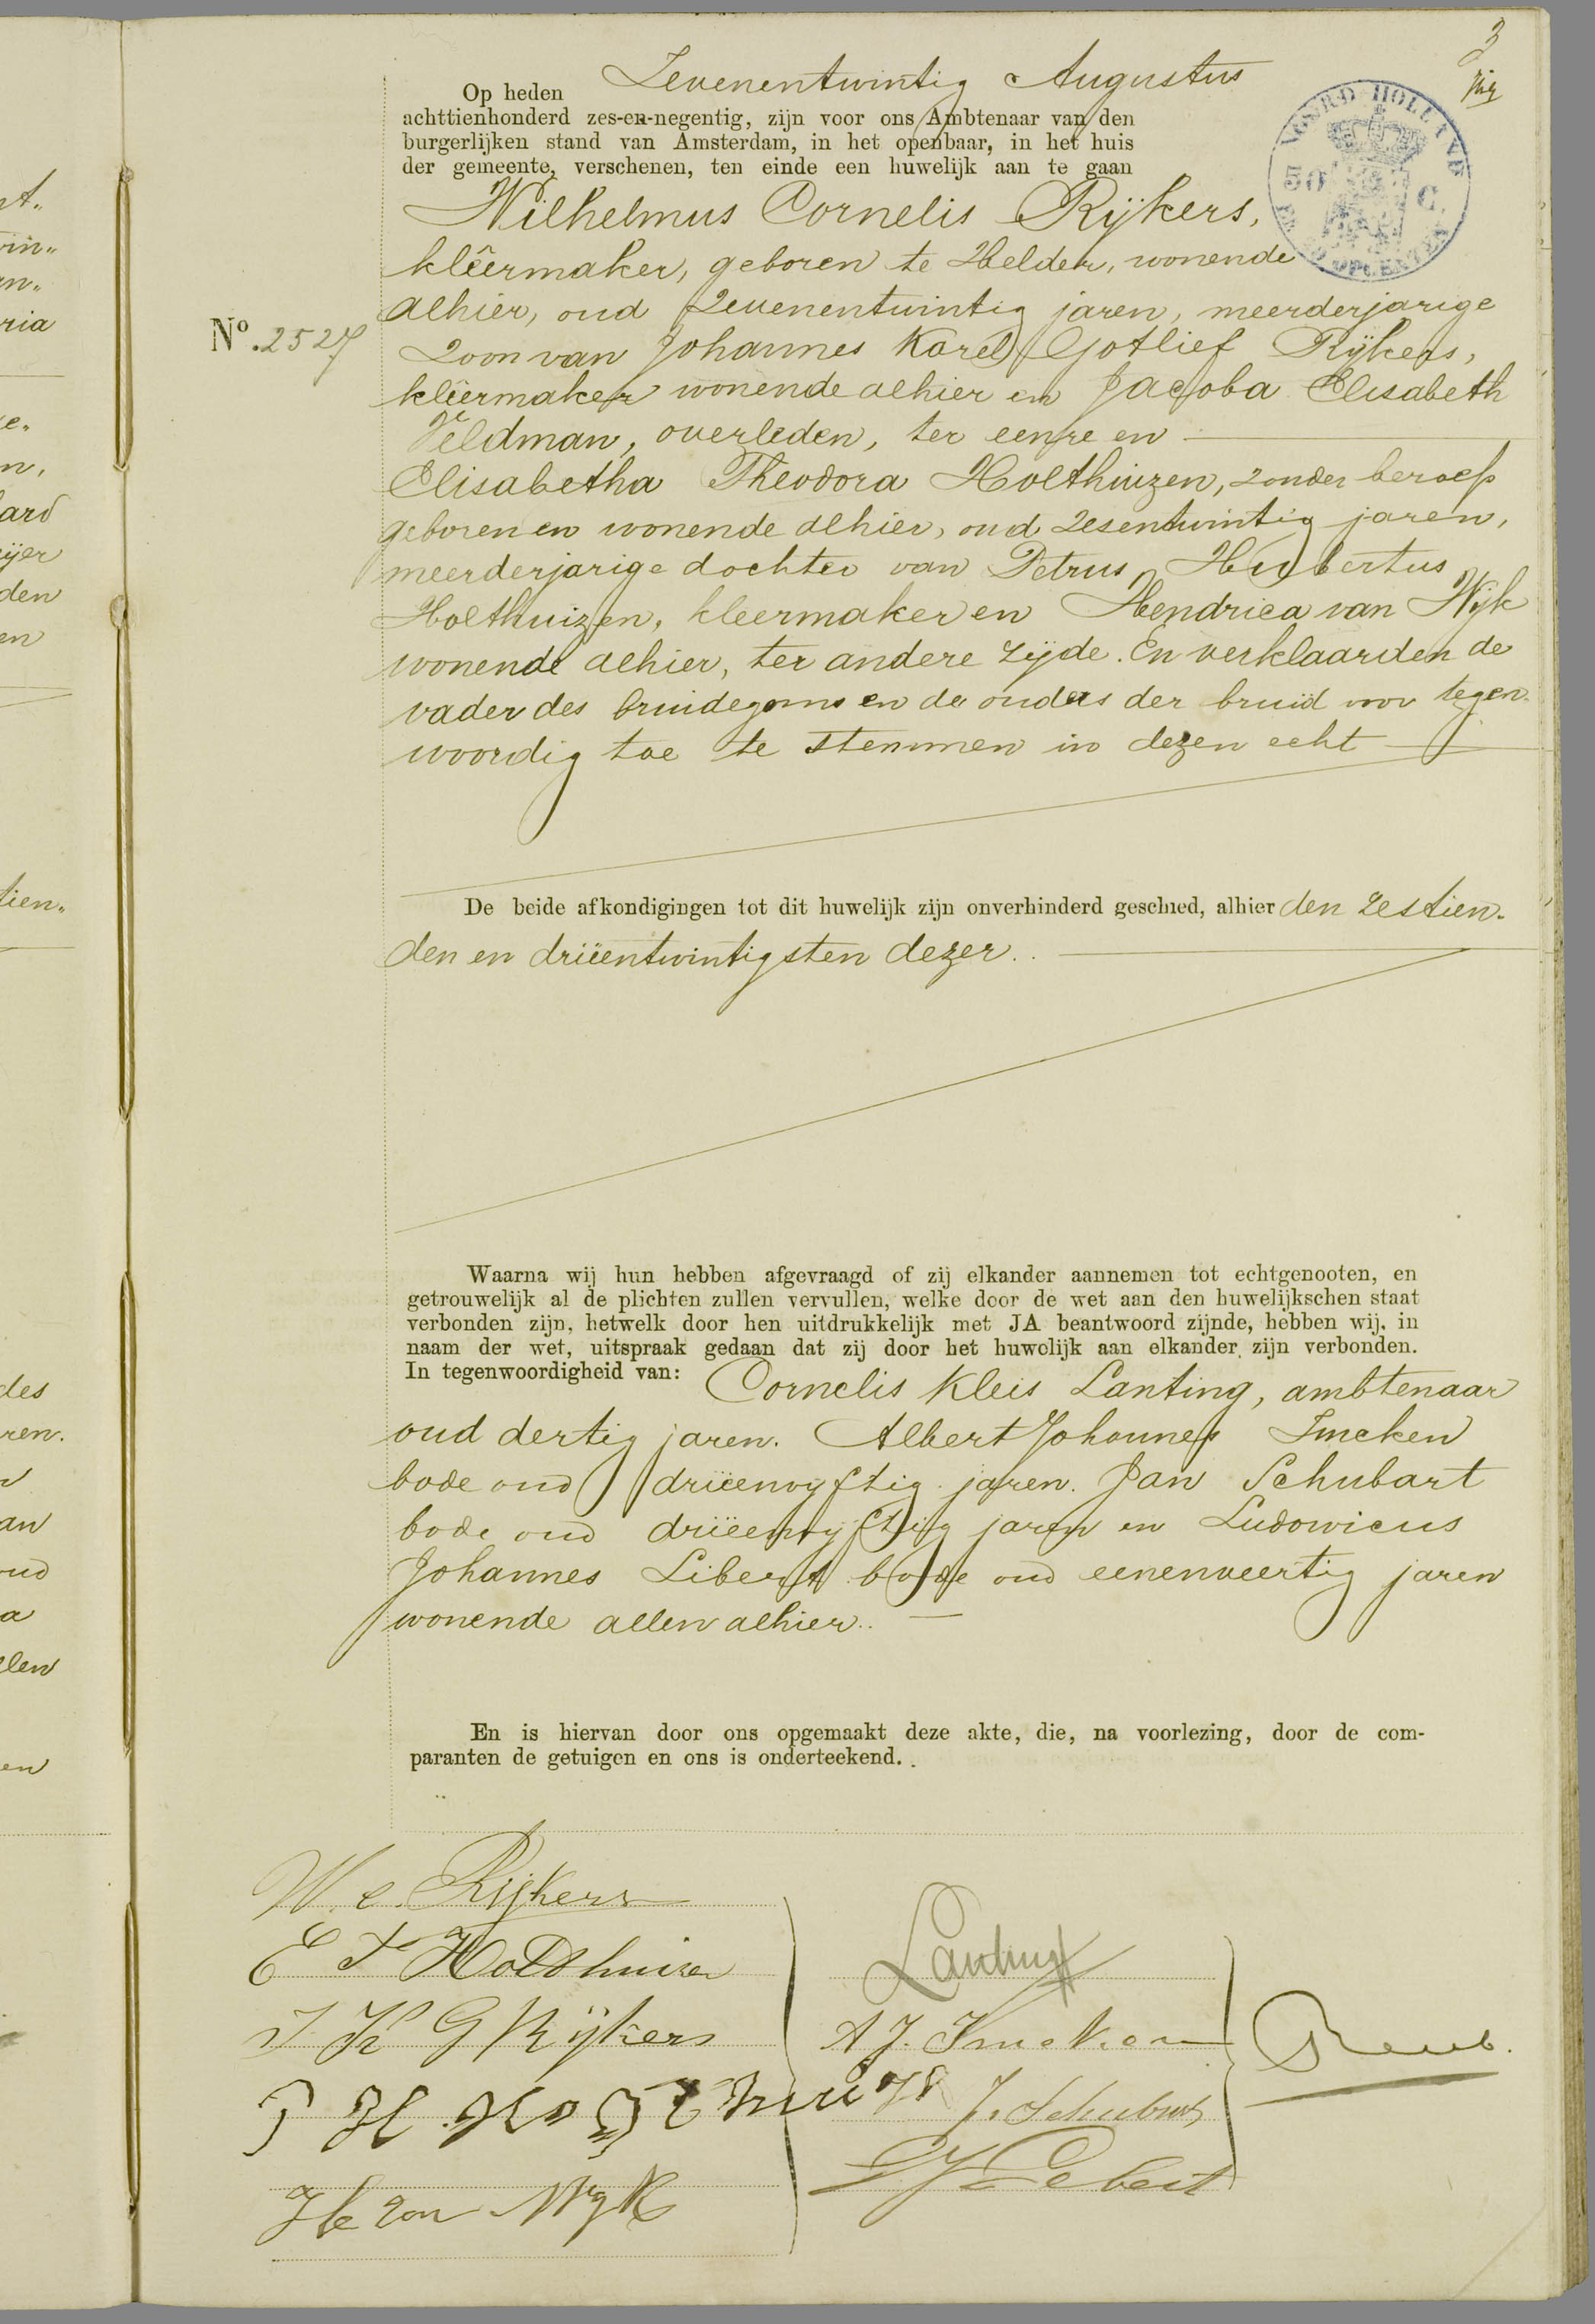 3
Op heden Zevenentwintig Augustus
achttienhonderd zes-en-negentig, zijn voor ons Ambtenaar van den
burgerlijken stand van Amsterdam, in het openbaar, in het huis
der gemeente, verschenen, ten einde een huwelijk aan te gaan
Wilhelmus Cornelis Rijkers,
kleêrmaker, geboren te Helder, wonende
alhier, oud zevenentwintig jaren, meerderjarige
No. 2527
zoon van Johannes Karel Gotlief Rijkers,
kleêrmaker wonende alhier en Jacoba Elisabeth
Veldman, overleden, ter eenre en
Elisabetha Theodora Holthuizen, zonder beroep
geboren en wonende alhier, oud zesentwintig jaren,
meerderjarige dochter van Petrus Hubertus
Holthuizen, kleermaker en Hendrica van Wijk
wonende alhier, ter andere zijde. En verklaarden de
vader des bruidegoms en de ouders der bruid voor tegen-
woordig toe te stemmen in dezen echt
De beide afkondigingen tot dit huwelijk zijn onverhinderd geschied, alhier den zestien-
den en driëentwintigsten dezer.
Waarna wij hun hebben afgevraagd of zij elkander aannemen tot echtgenooten, en
getrouwelijk al de plichten zullen vervullen, welke door de wet aan den huwelijkschen staat
verbonden zijn, hetwelk door hen uitdrukkelijk met JA beantwoord zijnde, hebben wij, in
naam der wet, uitspraak gedaan dat zij door het huwelijk aan elkander zijn verbonden.
In tegenwoordigheid van: Cornelis Kleis Lanting, ambtenaar
oud dertig jaren. Albert Johannes Imcken
bode oud driëenvyftig jaren. Jan Schubart
bode oud driëenvyftig jaren en Ludowicus
Johannes Libert bode oud eenenveertig jaren
wonende allen alhier.
En is hiervan door ons opgemaakt deze akte, die, na voorlezing, door de com-
paranten de getuigen en ons is onderteekend.
W. C. Rijkers
E T Holdhuizen
J K G Rijkers
P H Holthuize
H van Wyk
Lanting
A J. Imcken
J. Schubart
L J Libert